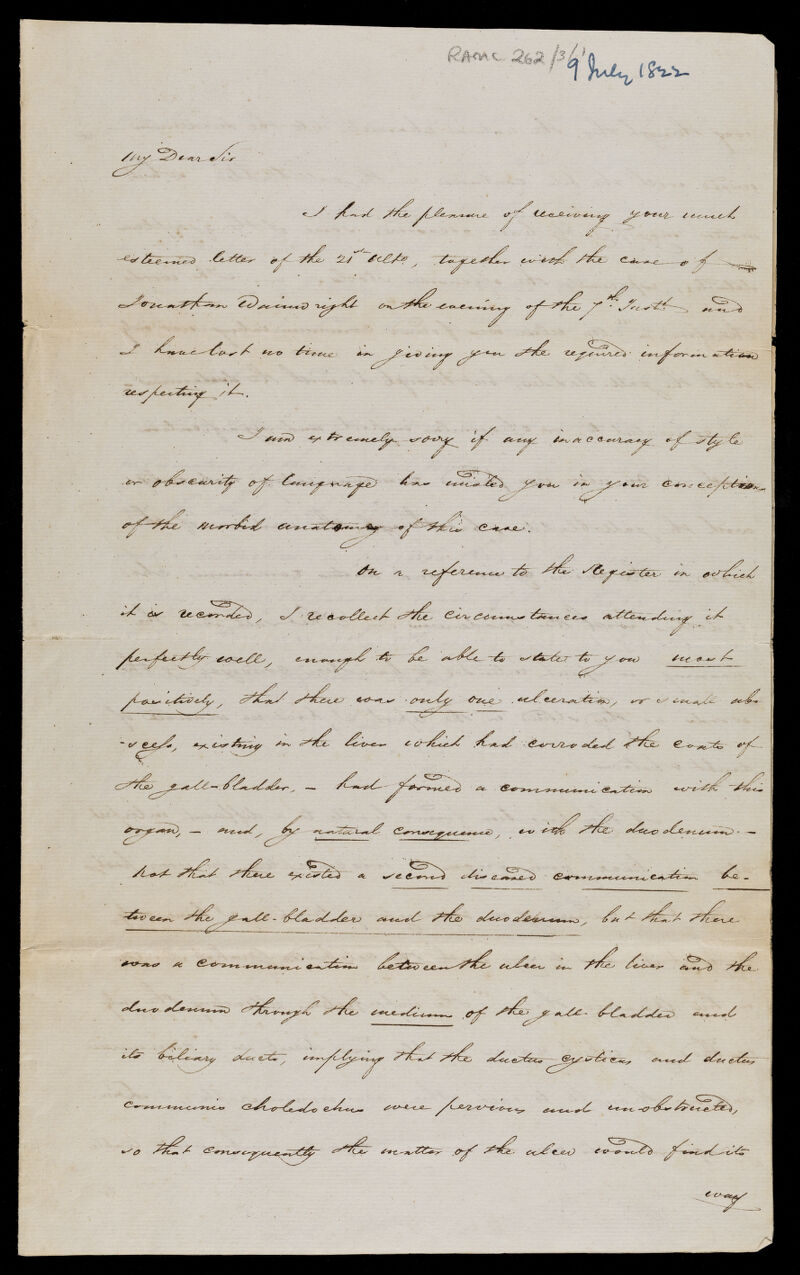 RAMC 262/3/1
9 July 1822
My Dear Sir
I had the pleasure of receiving your much
esteemed letter of the 21st ulto, together with the case of
Jonathan Wainwright on the evening of the 7th Insth and
I have lost no time in giving you the required information
respecting it.
I am extremely sorry if any inaccuracy of style
or obscurity of language has misled you in your conceptions
of the morbid anatomy of this case.
On a reference to the Register in which
it is recorded, I recollect the circumstances attending it
perfectly well, enough to be able to state to you most
positively, that there was only one ulceration, or small abs
-cess, existing in the liver which had corroded the coats of
the gall-bladder, – had formed a communication with this
organ, – and, by natural consequence, with the duodenum. –
Not that there existed a second diseased communication be-
tween the gall-bladder and the duodenum, but that there
was a communication between the ulcer in the liver and the
duodenum through the medium of the gall-bladder and
its biliary ducts, implying that the ductus cysticus and ductus
communis choledochus were pervious and unobstructed,
so that consequently the matter of the ulcer would find its
way